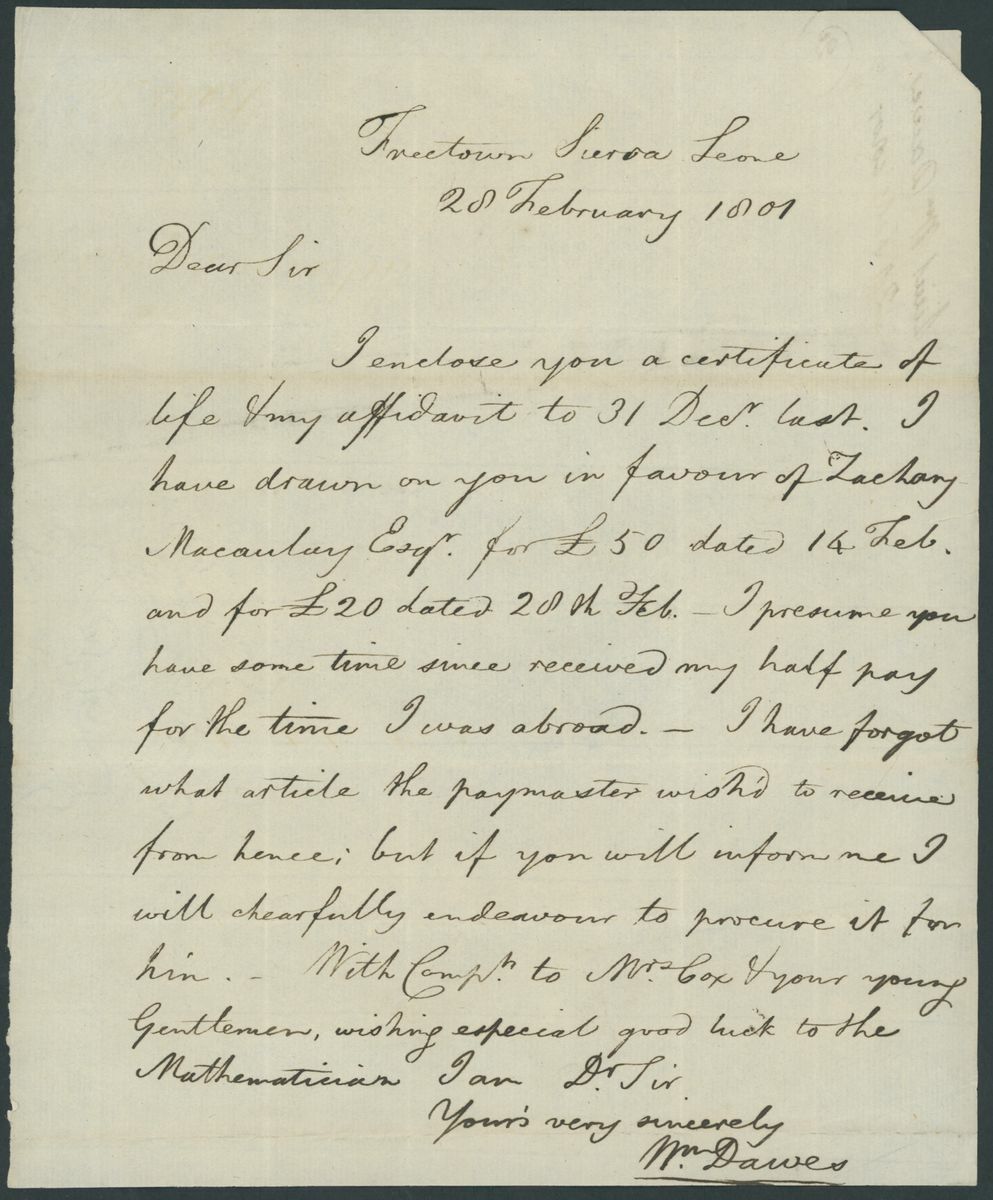 Freetown Sierra Leone
28 February 1801
Dear Sir
I enclose you a certificate of
life & my affidavit to 31 Decr. last. I
have drawn on you in favour of Zachary
Macaulay Esqr. for £50 dated 14 Feb.
and for £20 dated 28th Feb. – I presume you
have some time since received my half pay
for the time I was abroad. – I have forgot
what article the paymaster wish'd to receive
from hence; but if you will inform me I
will chearfully endeavour to procure it for
him. – With Compts. to Mrs. Cox & your young
Gentlemen, wishing especial good luck to the
Mathematician I am Dr. Sir
Your's very sincerely
Wm. Dawes